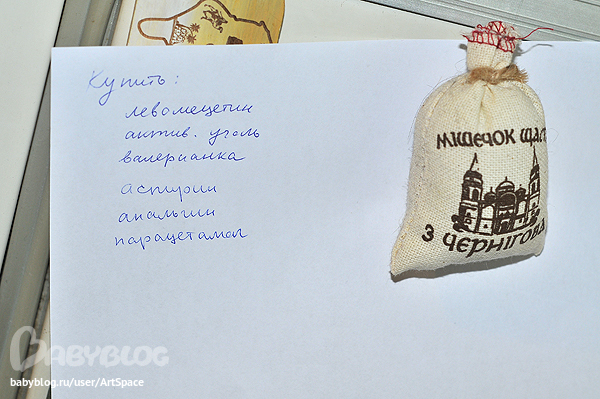 Купить:
левомецетин
актив. уголь
валерианка
аспирин
анальгин
парацетамол
МІШЕЧОК ЩАС
З ЧЕРНІГОВА
BABYBLOG
babyblog.ru/user/ArtSpace